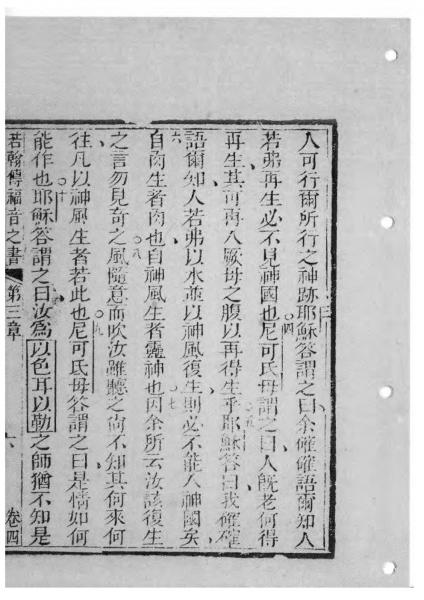 人可行爾所行之神跡耶穌答謂之曰余確確語爾知人
三
若弗再生必不見神國也尼可氐母謂之曰人旣老何得
四
再生其可再入厥母之腹以再得生乎耶穌答曰我確確
五
語爾知人若弗以水並以神風復生則必不能入神國矣
六
自肉生者肉也自神風生者靈神也因余所云汝該復生
七
之言勿見奇之風隨意而吹汝雖聽之尚不知其何來何
八
往凡以神風生者若此也尼可氐母答謂之曰是情如何
九
能作也耶穌答謂之曰汝爲以色耳以勒之師猶不知是
十
若翰傳福音之書 第三章 六 卷四